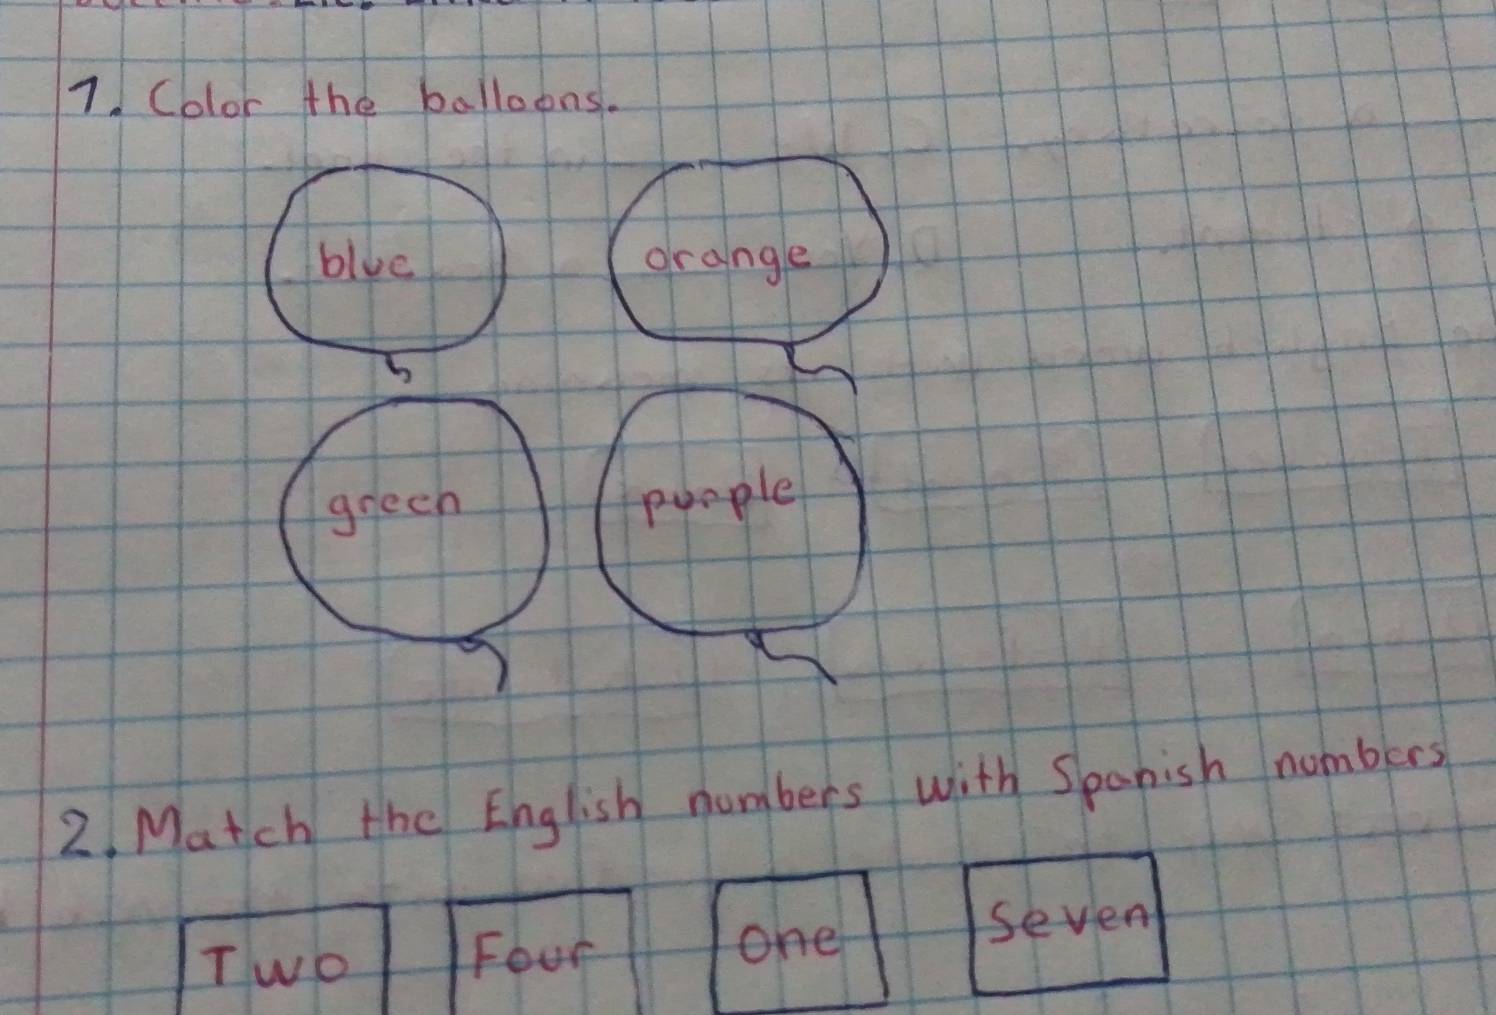 1. Color the balloons.
blue orange
green purple
2. Match the English numbers with Spanish numbers
Two Four One Seven